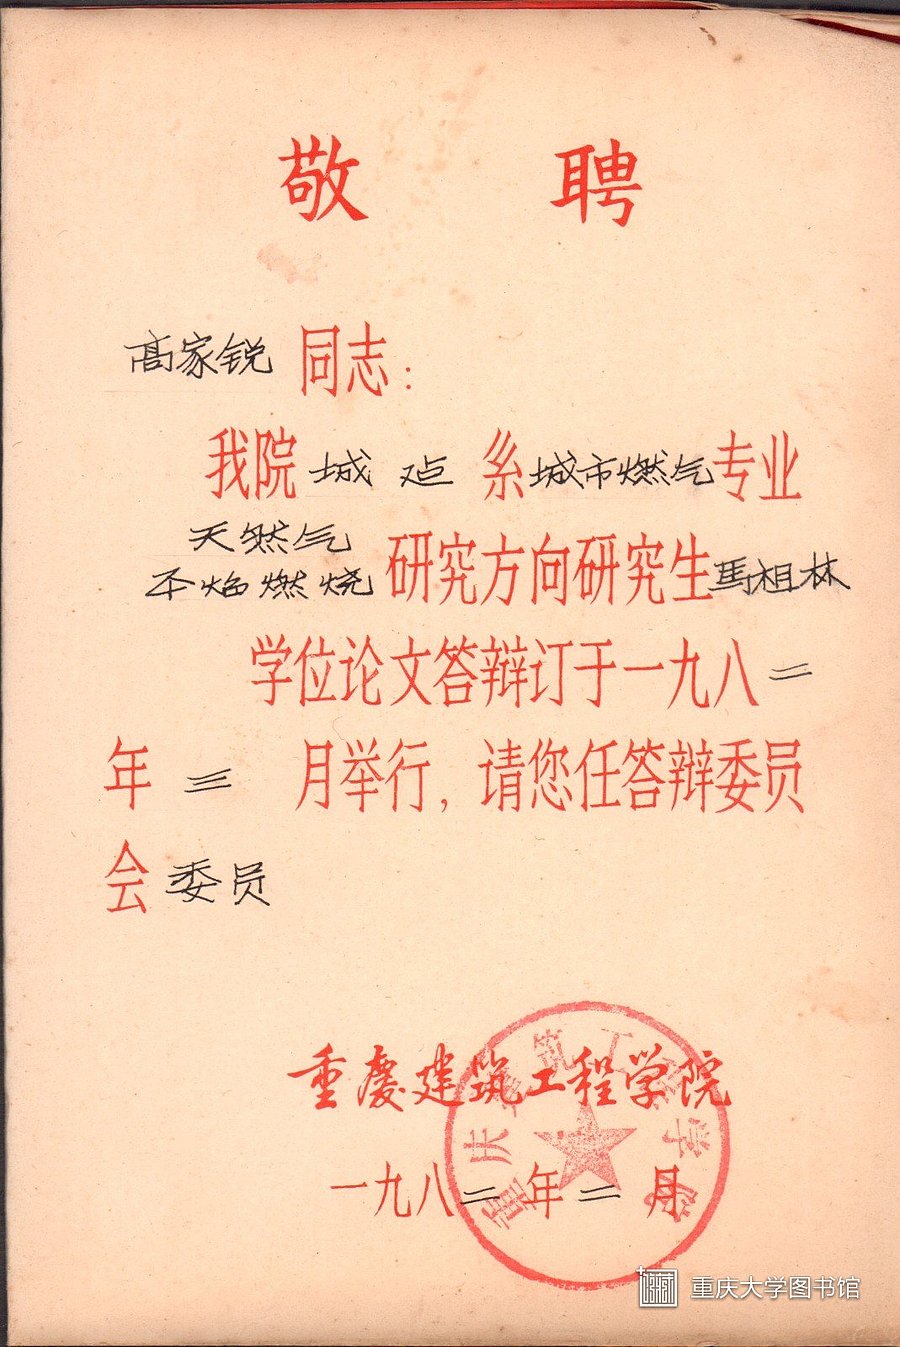 敬 聘
高家锐 同志：
我院 城 建 系 城市燃气 专业
天然气
不焰燃烧 研究方向研究生 馬祖林
学位论文答辩订于一九八 二
年 三 月举行，请您任答辩委员
会 委员
重慶建筑工程学院
一九八二年二月
重庆建筑工程学院
重庆大学图书馆